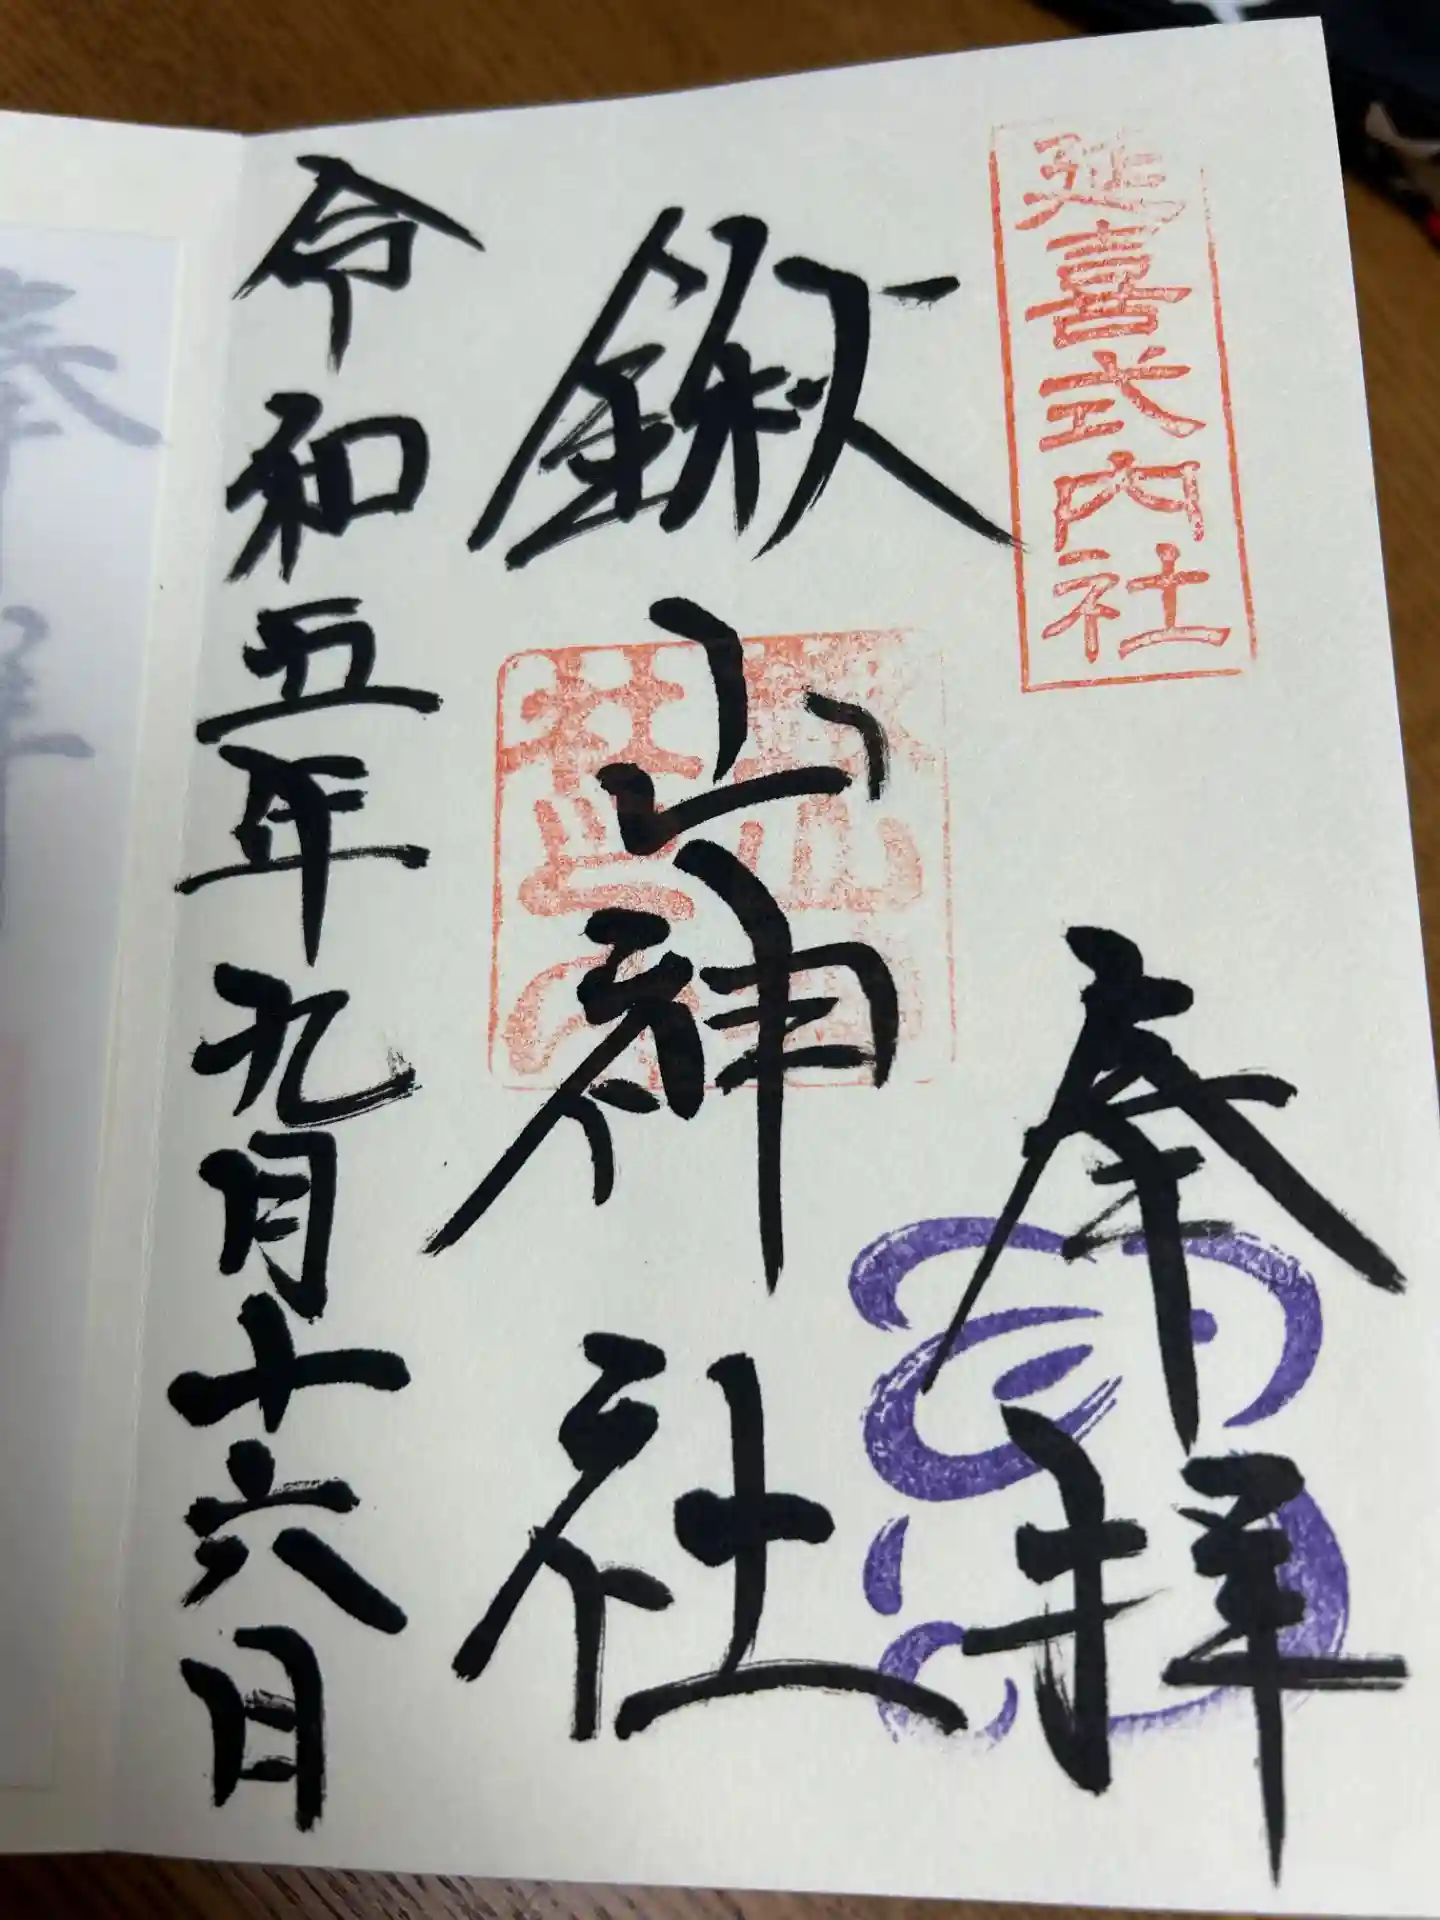 延喜式内社
奉拝
鍬山神社
令和五年九月十六日
奉拝